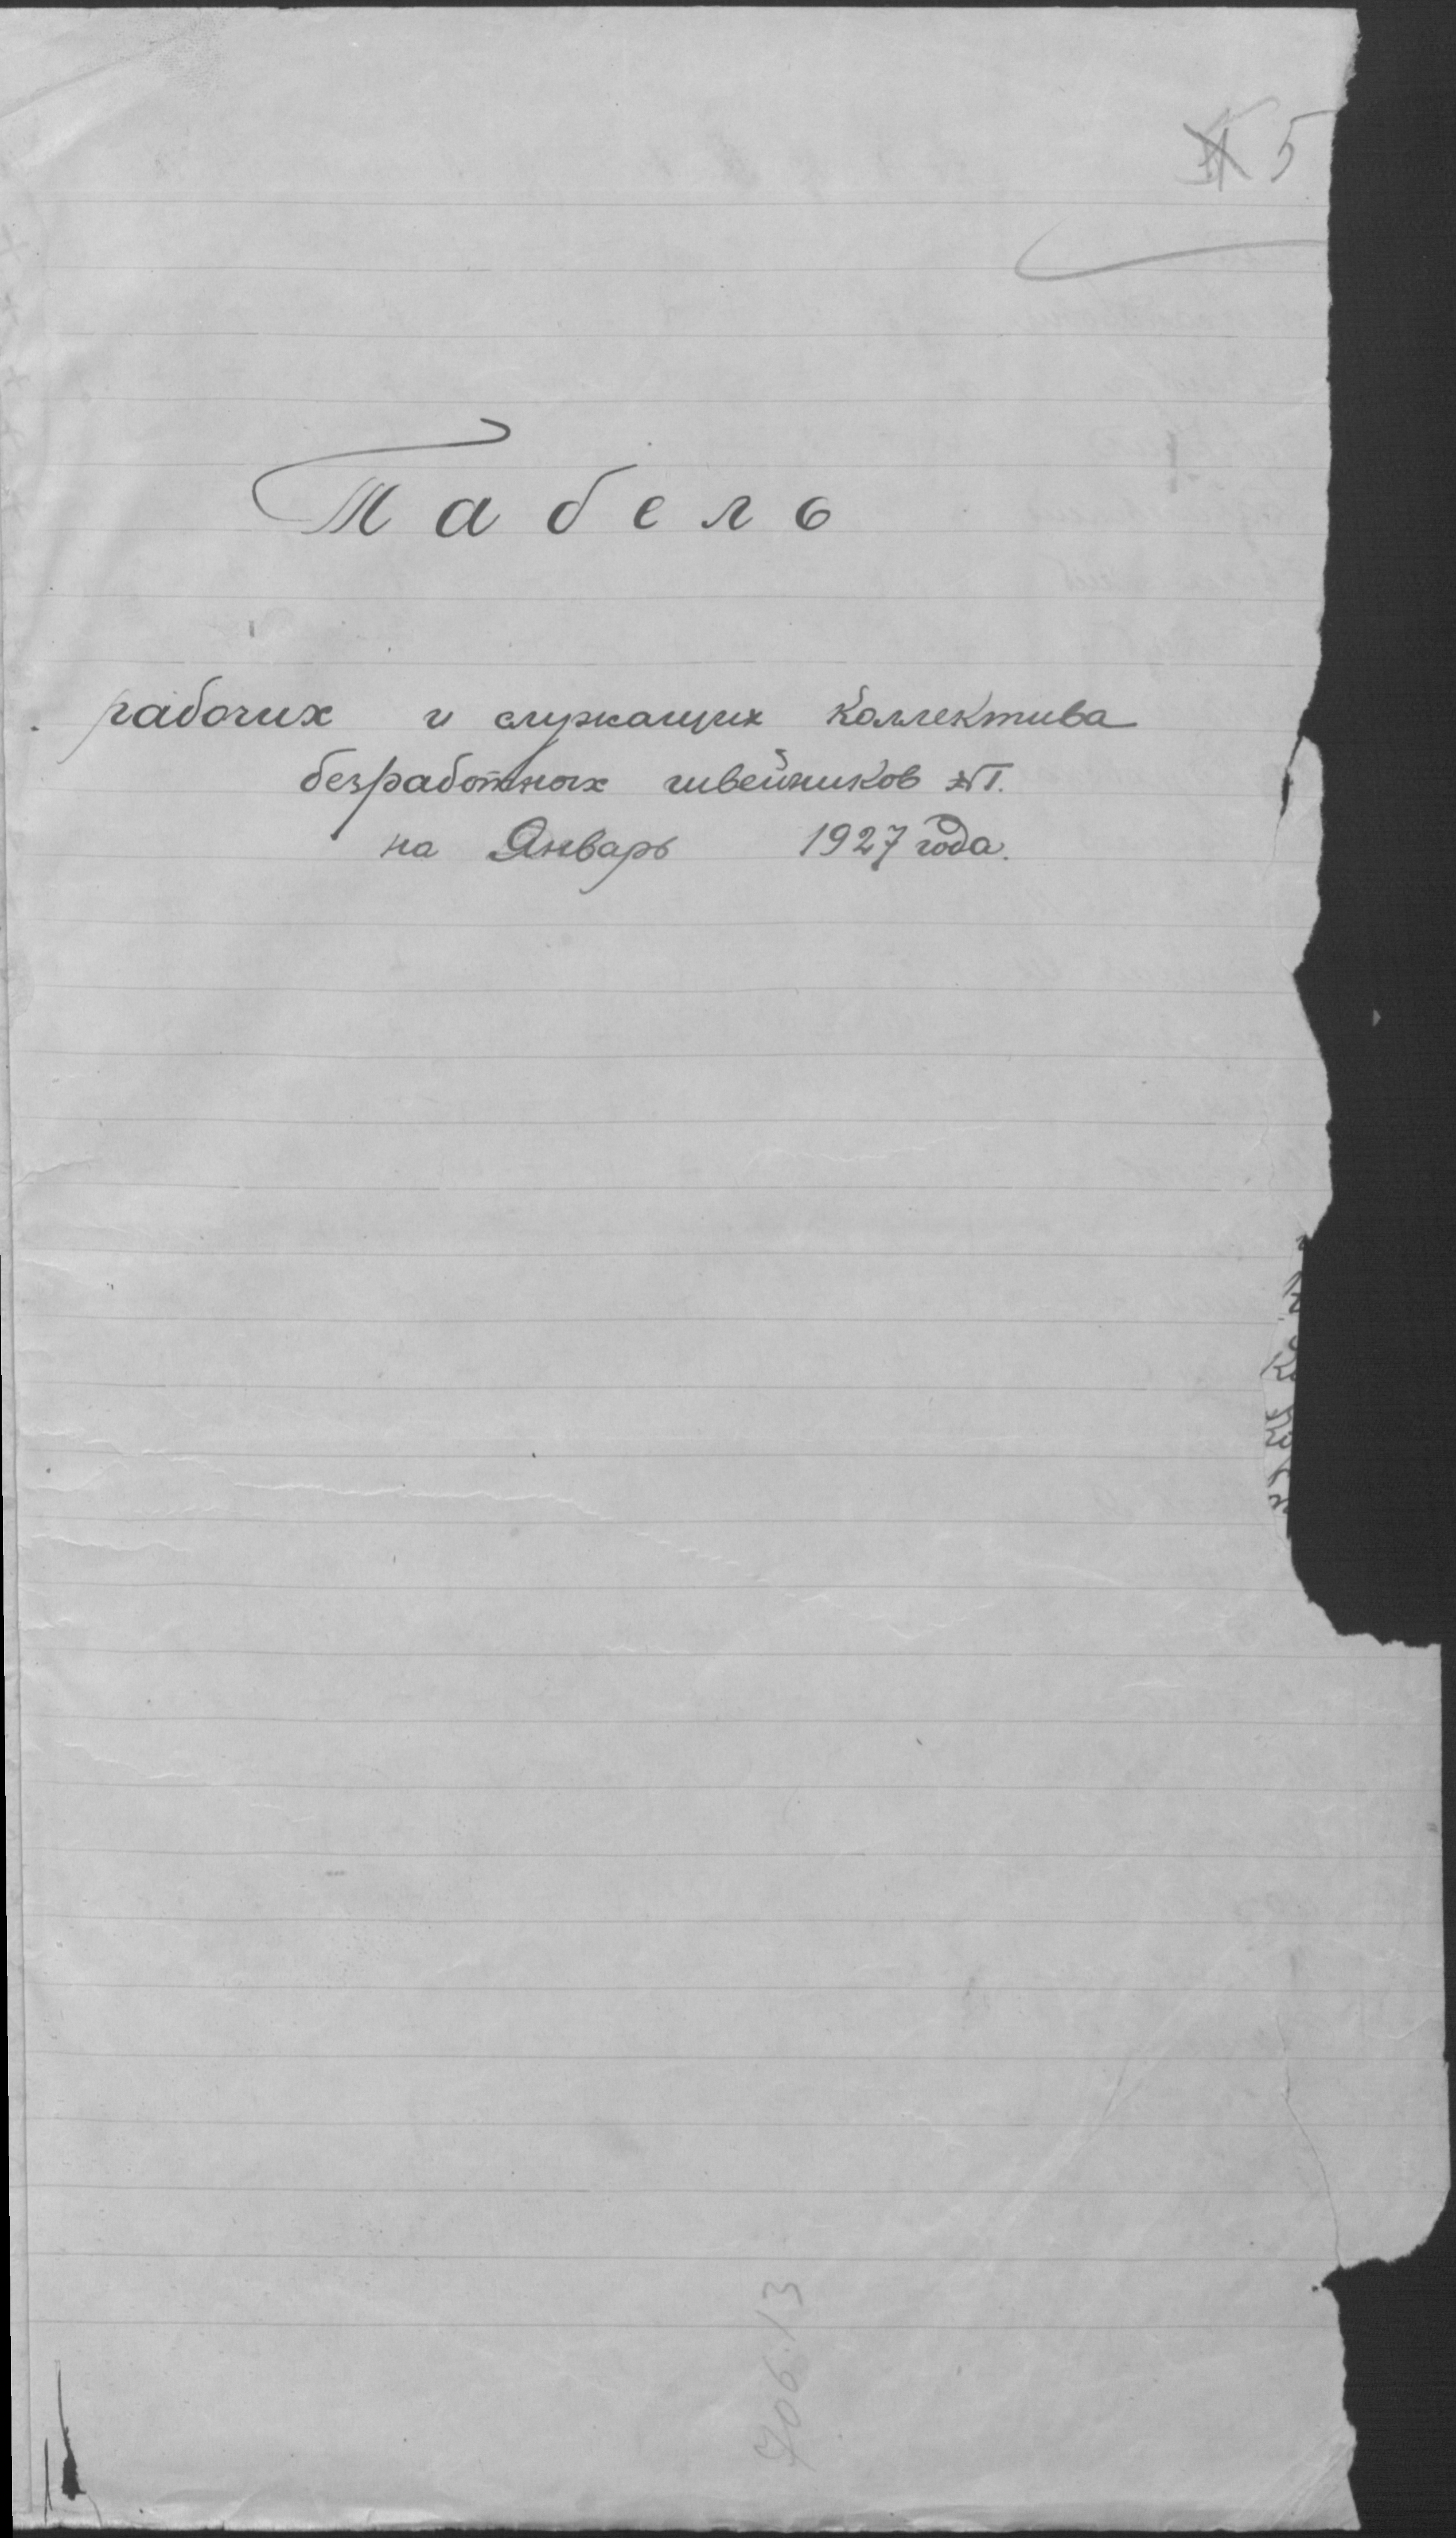 5
Табель
рабочих и служащих Коллектива
безработных швейников №1.
на Январь 1927 года.
706.13